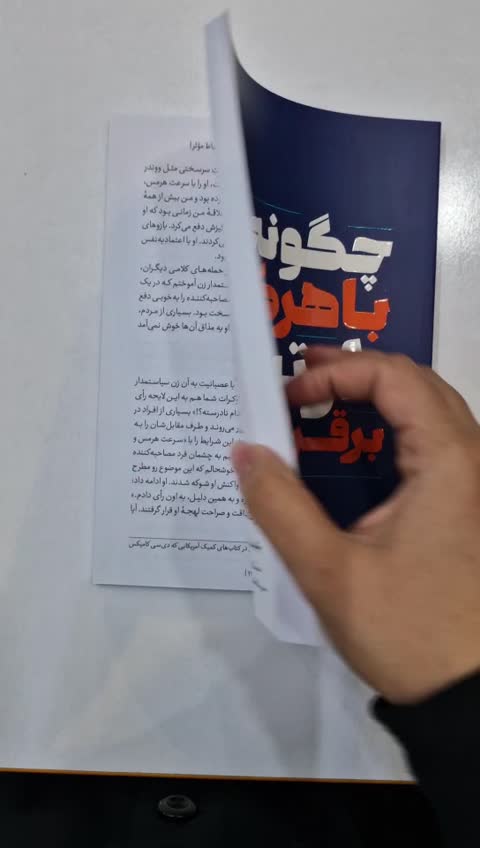 چگونه
با هر
برقر
سرسختی مثل ووندر
او را با سرعت هرمس،
زده بود و من بیش از همهٔ
علاقهٔ من زمانی بود که او
میزش دفع می‌کرد. بازوهای
می‌کردند. او با اعتمادبه‌نفس
ود.
حمله‌های کلامی دیگران،
ستمدار زن آموختم که در یک
صاحبه‌کننده را به‌خوبی دفع
سخت بود. بسیاری از مردم،
او به مذاق آن‌ها خوش نمی‌آمد
با عصبانیت به آن زن سیاستمدار
کرات شما هم به این لایحه رأی
دام نادرسته؟!» بسیاری از افراد در
می‌روند و طرف مقابل‌شان را به
این شرایط را با «سرعت هرمس و
م به چشمان فرد مصاحبه‌کننده
خوشحالم که این موضوع رو مطرح
اکنش او شوکه شدند. او ادامه داد:
و به همین دلیل، به اون رأی دادم.»
افت و صراحت لهجهٔ او قرار گرفتند. آیا
در کتاب‌های کمیک آمریکایی که دی‌سی کامیکس